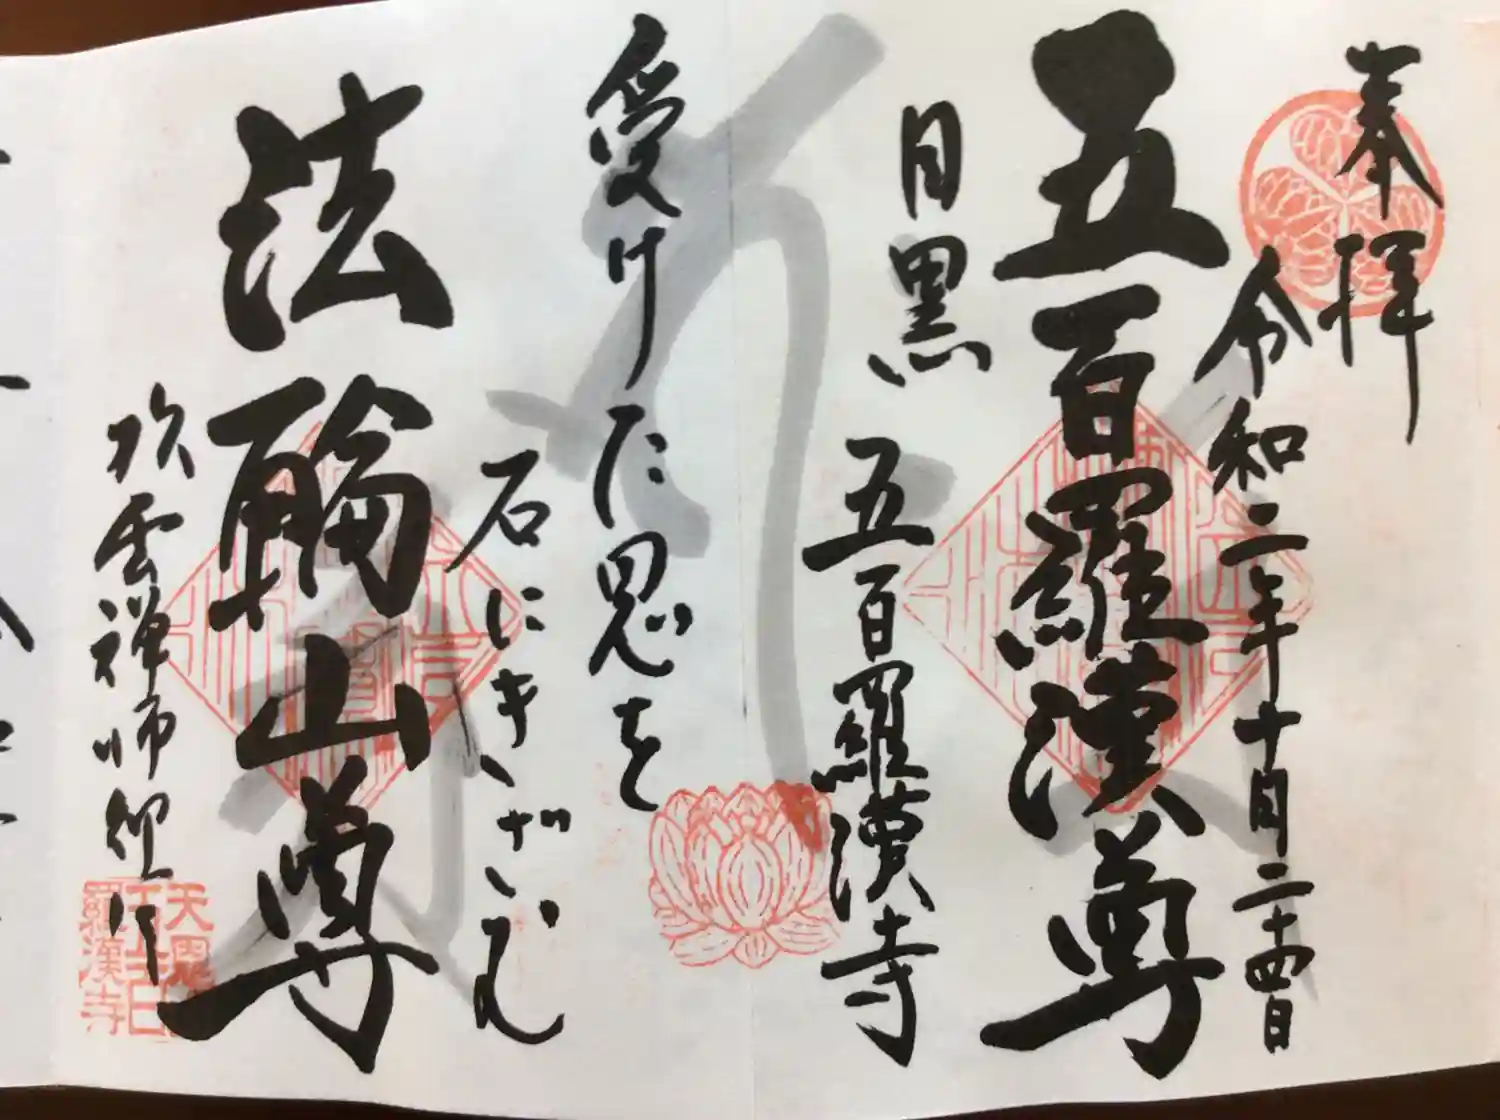 奉拝
令和二年十月二十四日
五百羅漢尊
目黒
五百羅漢寺
受けた恩を
石にきざむ
法輪山尊
雲禅師
天恩山
五百
羅漢寺